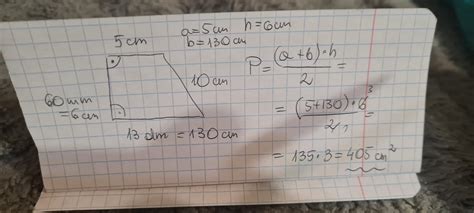 a=5cm h=6cm
b=130cm
5cm
10cm
60mm
=6cm
13 dm = 130 cm
P = (a+b)·h / 2 =
= (5+130)·6³ / 2₁ =
= 135·3 = 405 cm²